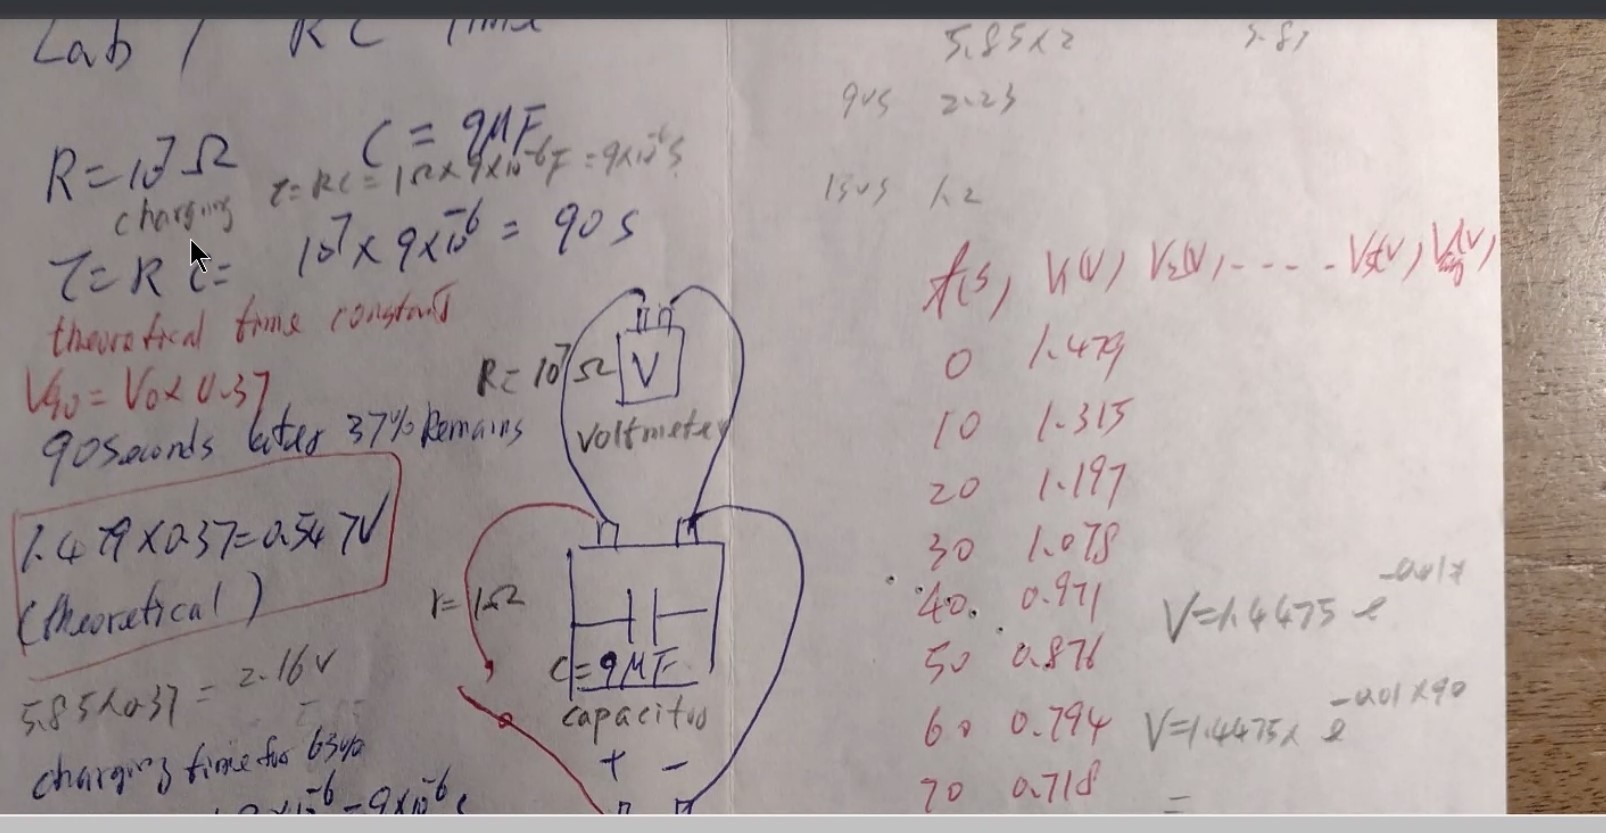 Lab 1 RC Time
R=10⁷Ω C=9MF
charging τ=RC=1Ω×9×10⁻⁶F=9×10⁻⁶S
τ=RC= 10⁷×9×10⁻⁶=90s
theoretical time constant
V90=V0×0.37
90seconds later 37% Remains
1.479×0.37=0.547V
(theoretical)
5.85×0.37=2.16V
charging time for 63%
R=10⁷Ω
V
voltmeter
r=1Ω
C=9MF
capacitor
+ -
5.85×2
90s 2.23
1.2
t(s) V1(V) V2(V) ---- V5(V)
0 1.479
10 1.315
20 1.197
30 1.078
40 0.971
50 0.876
60 0.794
70 0.718
V=1.4475 e
V=1.4475× e⁻⁰·⁰¹×⁹⁰
=